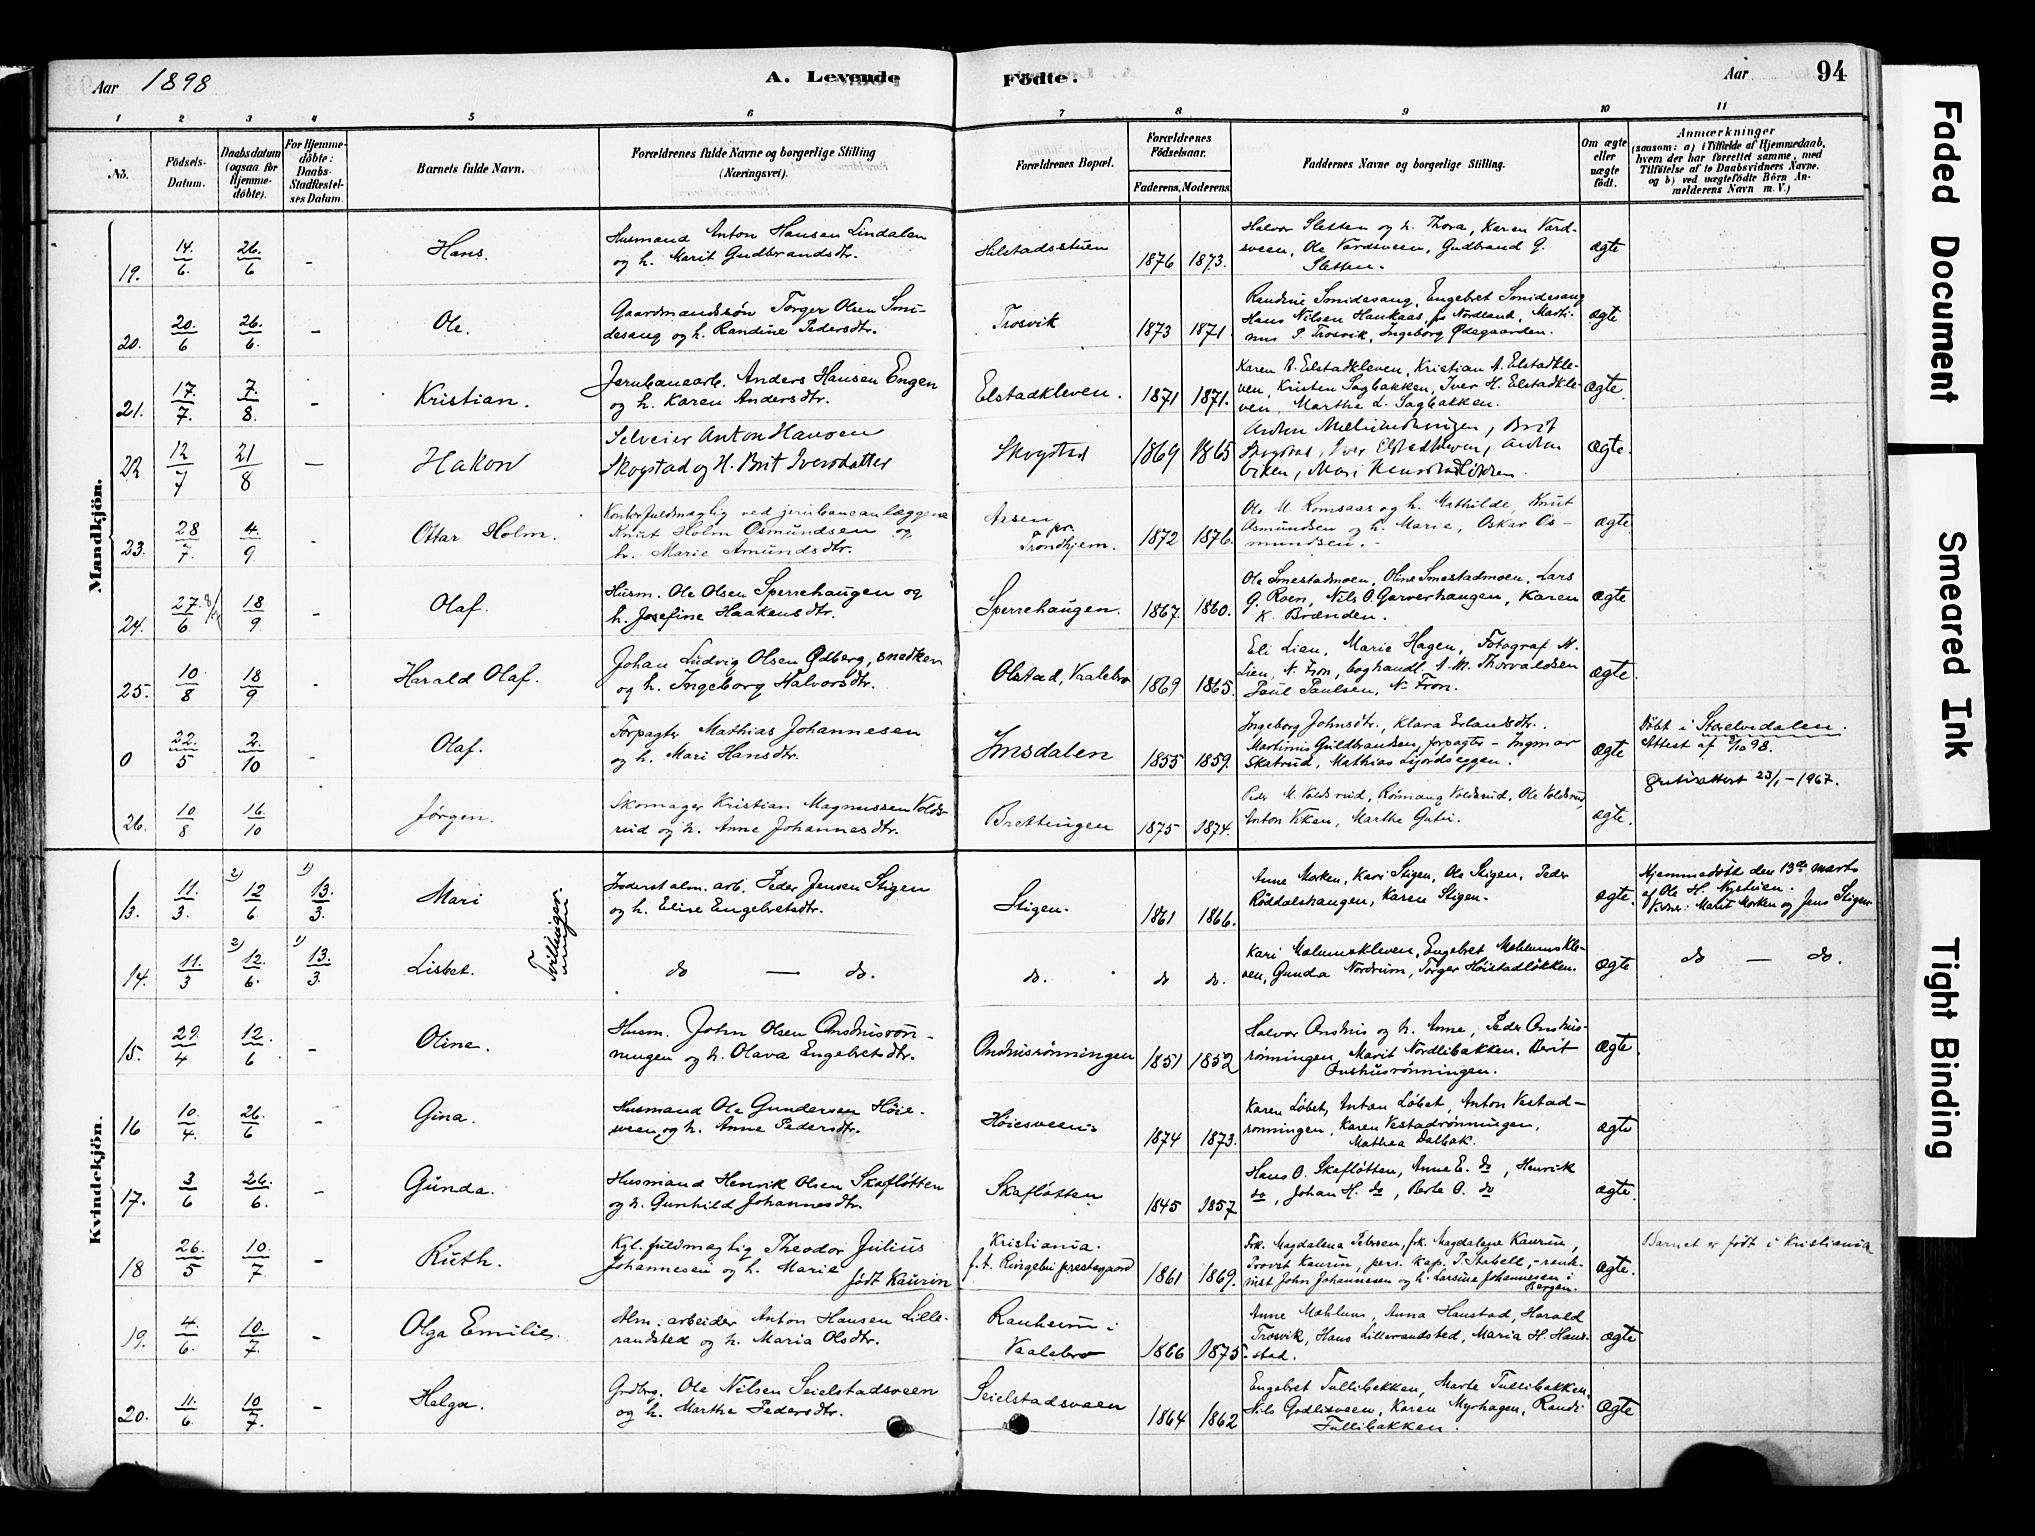 Aar 1898
A. Levende
Födte.
Aar
94
1 2 3 4 5 6 7 8 9 10 11
No.
Födsels-
Datum.
Daabsdatum
(ogsaa for
Hjemme-
döbte).
For Hjemme-
döbte:
Daabs-
Stadfæstel-
ses Datum.
Barnets fulde Navn.
Forældrenes fulde Navne og borgerlige Stilling
(Næringsvei).
Forældrenes Bopæl.
Forældrenes
Födselsaar.
Faderens. Moderens.
Faddernes Navne og borgerlige Stilling.
Om ægte
eller
uægte
født.
Anmærkninger
(saasom: a) i Tilfælde af Hjemmedaab,
hvem der har forrettet samme, med
Tilföielse af to Daabsvidners Navne.
og b) ved uægtefödte Börn An-
melderens Navn m. V.)
Mandkjön.
19. 14./6. 26./6 - Hans.
Husmand Anton Hansen Lindalen
og h. Marit Gudbrandsdtr.
Hilstadsstuen 1876 1873.
Halvor Sletten og h. Thora, Karen Vard-
sveen, Ole Vardsveen, Gudbrand G.
Sletten.
ægte
20. 20./6 26./6. - Ole.
Gaardmandssøn Torger Olsen Smi-
desang og h. Randine Pedersdtr.
Trosvik 1873 1871
Randine Smidesang, Engebret Smidesang
Hans Nilsen Haukaas, fra Nordland, Marti-
nus P. Trosvik, Ingeborg Ødegaarden.
ægte
21. 17./7. 7./8. - Kristian.
Jernbanearb. Anders Hansen Engen
og h. Karen Andersdtr.
Elstadkleven. 1871 1871.
Karen A. Elstadkleven, Kristian A. Elstadkle-
ven, Kristen Sagbakken, Iver H. Elstadkle-
ven, Marthe L. Sagbakken.
ægte.
22 12/7 21/8 - Hakon
Selveier Anton Hansen
Skogstad og H. Brit Iversdatter
Skogstad 1869 1865
Skogstad, Iver Elstadkleven, Anton
Viken, Mari
ægte.
23. 28/7 4./9. - Ottar Holm.
Kontorfuldmægtig ved jernbaneanlæggene
Knut Holm Osmundsen og
h. Marie Amundsdtr.
Aasen pr.
Trondhjem. 1872 1876.
Ole M. Romsaas og h. Mathilde, Knut
Asmundsen og h. Marie, Oskar Os-
mundsen.-
ægte.
24. 27./6 18/9. - Olaf.
Husm. Ole Olsen Sperrehaugen og
h. Josefine Haakensdtr.
Sperrehaugen. 1867. 1860.
Ole Smestadmoen, Oline Smestadmoen, Lars
G. Roen, Nils O. Garverhaugen, Karen
K. Brænden.
ægte
25. 10./8 18/9 - Harald Olaf.
Johan Ludvig Olsen Ødberg, snedker
og h. Ingeborg Halvorsdtr.
Olstad, Vaalebro 1869 1865.
Eli Lien, Marie Hagen, Fotograf N.
Lien, N. Fron, boghandl. A. M. Thorvaldsen
Paul Paulsen, N- Fron.
ægte.
0 22./5 2./10 - Olaf.
Forpagter Mathias Johannesen
og h. Mari Hansdtr.
Imsdalen 1855 1859.
Ingeborg Johnsdtr., Klara Erlandsdtr.
Martinus Guldbrandsen, forpagter - Ingmar
Skatrud, Mathias
ægte
Døbt i Storelvedalen.
Attest af 8/10 98.
23/1 - 1967.
26. 10/8 16/10 - Jørgen.
Skomager Kristian Magnussen Volds-
rud og h. Anne Johannesdtr.
Brettingen 1875 1874.
Peder M. Voldsrud, Rønnaug Voldsrud, Ole Voldsrud
Anton Viken, Marthe
ægte.
Kvindekjön.
13. 11./3. 2) 12/6 1) 13./3. Mari
Tvillinger
Inderst alm. arb. Peder Jensen Stigen
og h. Elise Engebretsdtr.
Stigen. 1861 1866.
Anne Morken, Kari Stigen, Ole Stigen, Peder
Røddalshaugen, Karen Stigen.
ægte.
Hjemmedøbt den 13de marts
af Ole H. Nystuen.
Vidner: Marit Morken og Jens Stigen
14. 11./3 2) 12./6. 1) 13./3. Lisbet.
do — do.
do. do do.
Kari Mælumskleven, Engebret Mælumskle-
ven, Gunda Nordrum, Torger Høistadløkken.
ægte
do — do.
15. 29./4 12./6 - Oline.
Husm. John Olsen Onshusrøn-
ningen og h. Olava Engebretsdtr.
Onshusrønningen 1851 1852
Halvor Onshus og h. Anne, Peder Onshus-
rønningen, Marit Nordlibakken, Berit
Onshusrønningen.
ægte.
16 10./4. 26./6 - Gina.
Husmand Ole Gundersen Høie-
sveen og h. Anne Pedersdtr.
Høiesveen 1874 1873.
Karen Løbet, Anton Løbet, Anton Vestad-
rønningen, Karen Vestadrønningen,
Mathea Dalbak.
ægte
17. 3/6 26./6. - Gunda.
Husmand Henrik Olsen Skafløtten
og h. Gunhild Johannesdtr.
Skafløtten 1845 1857
Hans O. Skafløtten, Anne E. do, Henrik
do, Johan H. do, Berte O. do
ægte.
18 26./5 10./7 - Ruth.
Kgl. fuldmægtig Theodor Julius
Johannesen og h. Marie
født Kaurin
Kristiania.
f.t. Ringebu prestegaard 1861 1869.
Frk. Magdalena Petersen, frk. Magdalene Kaurin,
Provst Kaurin, pers. kap. P. Stabell,
John Johannesen og h. Larsine Johannesen i
Bergen.
ægte.
Barnet er født i Kristiania
19. 4./6. 10./7. - Olga Emilie.
Alm. arbeider Anton Hansen Lille-
randsted og h. Maria Olsdtr.
Ranheim i
Vaalebro 1866 1875
Anne Mæhlum, Anna Hanstad, Harald
Trosvik, Hans Lillerandsted, Maria H. Han-
stad.
ægte
20. 11./6. 10/7. - Helga.
Grdbrg. Ole Nilsen Seielstadsveen
og h. Marthe Pedersdtr.
Seielstadsveen 1864 1862
Engebret Tullibakken, Marte Tullibakken,
Nils Godlisveen, Karen Myrhagen, Randi
Tullibakken.
ægte
Faded Document
Smeared Ink
Tight Binding